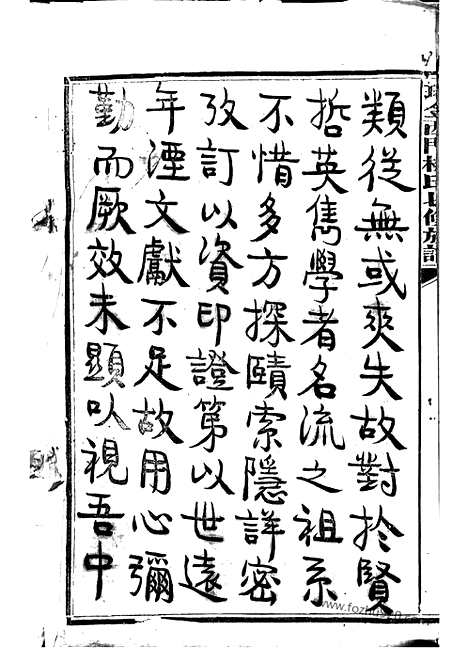 類從無或爽失故對於賢
哲英雋學者名流之祖系
不惜多方探賾索隱詳密
攷訂以資印證第以世遠
年湮文獻不足故用心彌
勤而厥效未顯以視吾中
www.fozhu920.com